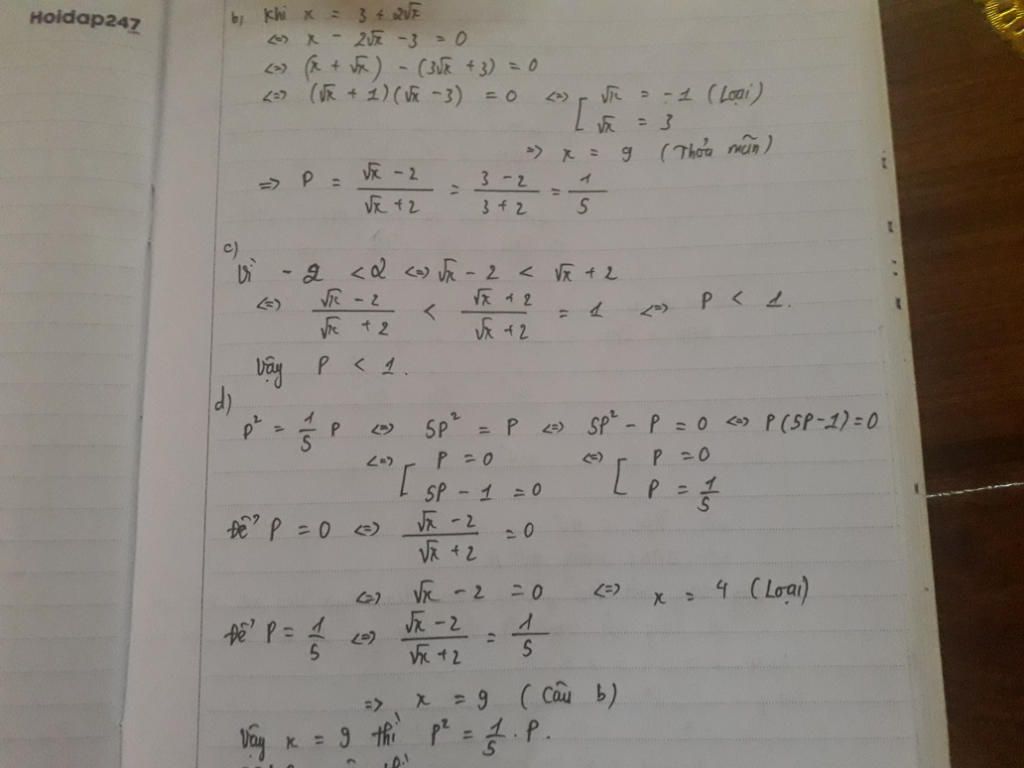 Hoidap247
b) Khi x = 3 + 2√x
<=> x - 2√x - 3 = 0
<=> (x + √x) - (3√x + 3) = 0
<=> (√x + 1)(√x - 3) = 0 <=> [ √x = -1 (Loại)
√x = 3
=> x = 9 (Thỏa mãn)
=> P = (√x - 2)/(√x + 2) = (3 - 2)/(3 + 2) = 1/5
c)
Vì - 2 < 2 <=> √x - 2 < √x + 2
<=> (√x - 2)/(√x + 2) < (√x + 2)/(√x + 2) = 1 <=> P < 1.
Vậy P < 1.
d)
P² = 1/5 P <=> 5P² = P <=> 5P² - P = 0 <=> P(5P-1) = 0
<=> [ P = 0 <=> [ P = 0
5P - 1 = 0 P = 1/5
Để P = 0 <=> (√x - 2)/(√x + 2) = 0
<=> √x - 2 = 0 <=> x = 4 (Loại)
Để P = 1/5 <=> (√x - 2)/(√x + 2) = 1/5
=> x = 9 (Câu b)
Vậy x = 9 thì P² = 1/5 . P.